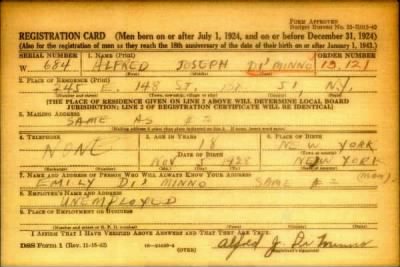 FORM APPROVED
REGISTRATION CARD—(Men born on or after July 1, 1924, and on or before December 31, 1924)
(Also for the registration of men as they reach the 18th anniversary of the date of their birth on or after January 1, 1943.)
SERIAL NUMBER 1. NAME (Print) ORDER NUMBER
W 684 ALFRED JOSEPH DI'MINNO 13121
2. PLACE OF RESIDENCE (Print)
245 E. 148 ST. 51, N.Y.
[THE PLACE OF RESIDENCE GIVEN ON LINE 2 ABOVE WILL DETERMINE LOCAL BOARD
JURISDICTION; LINE 2 OF REGISTRATION CERTIFICATE WILL BE IDENTICAL]
3. MAILING ADDRESS
SAME AS #2
4. TELEPHONE 5. AGE IN YEARS 6. PLACE OF BIRTH
NONE 18 NEW YORK
DATE OF BIRTH
NOV 5 NEW YORK
7. NAME AND ADDRESS OF PERSON WHO WILL ALWAYS KNOW YOUR ADDRESS
EMILY DI'MINNO SAME #2
8. EMPLOYER'S NAME AND ADDRESS
UNEMPLOYED
9. PLACE OF EMPLOYMENT OR BUSINESS
I AFFIRM THAT I HAVE VERIFIED ABOVE ANSWERS AND THAT THEY ARE TRUE.
DSS Form 1 (Rev. 11-16-42) (OVER) Alfred J. Di'Minno